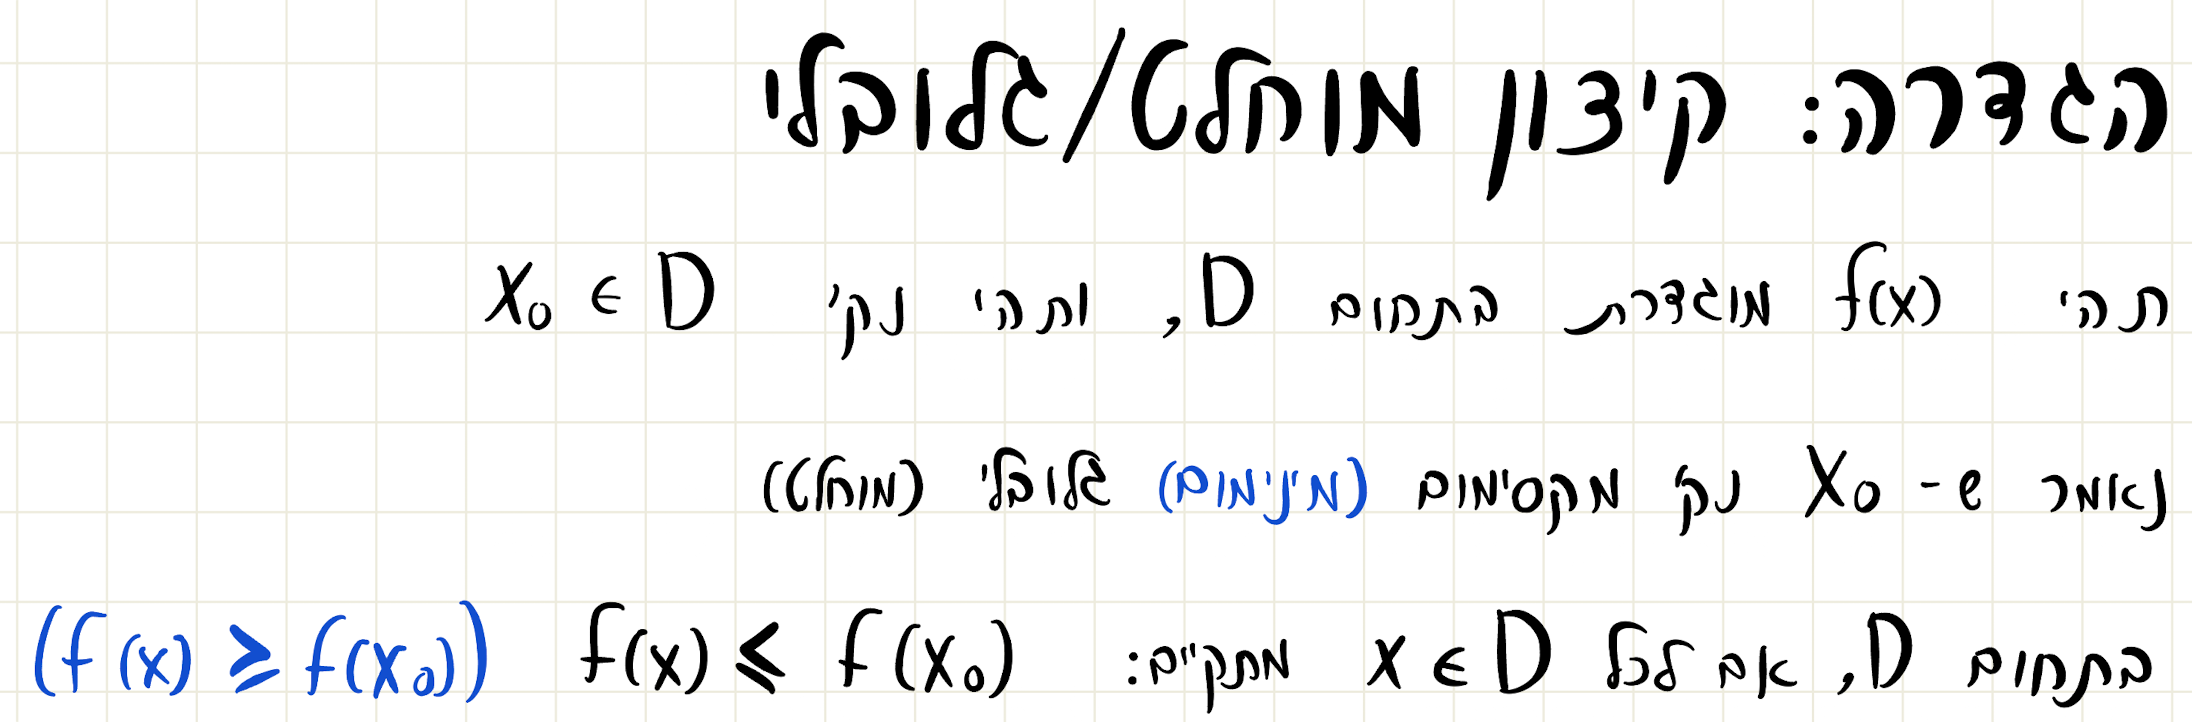 הגדרה: קיצון מוחלט/גלובלי
תהי f(x) מוגדרת בתחום D, ותהי נק' x₀ ∈ D
נאמר ש- x₀ נק' מקסימום (מינימום) גלובלי (מוחלט)
בתחום D, אם לכל x ∈ D מתקיים: f(x) ≤ f(x₀) (f(x) ≥ f(x₀))